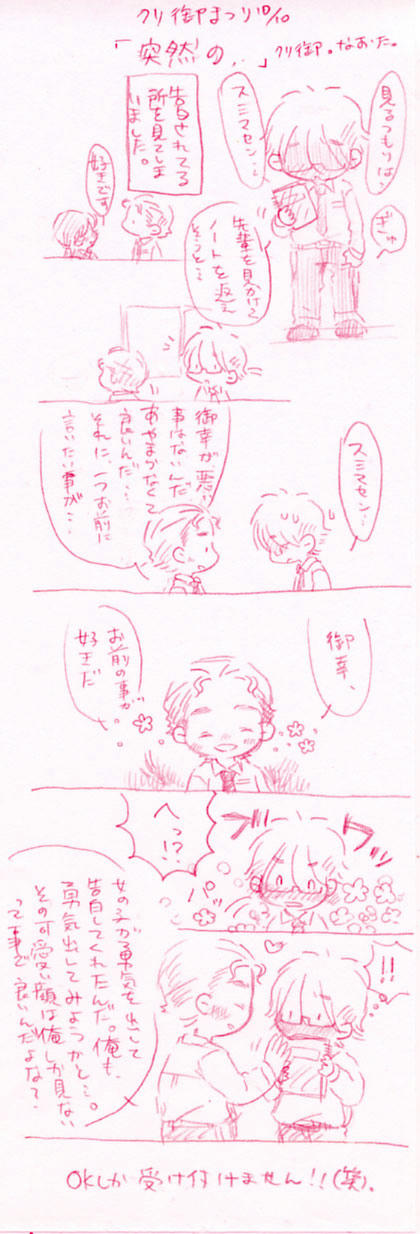 クリ御まつり10/10
「突然の、、」クリ御。なおた。
見るつもりは、
スミマセン…
ぎゅ
告白されてる
所を見てしま
いました。
好きです
先輩を見かけて
ノートを返え
そうと…
スミマセン…
御幸が悪い
事はないんだ
あやまらなくて
良いんだ…
それに、一つお前に
言いたい事が…
御幸、
お前の事が
好きだ
へっ!?
ブワッ
パッ
!!
女の子が勇気を出して
告白してくれたんだ。俺も、
勇気出してみようかと…。
その可愛い顔は俺しか見ない
って事で良いんだよな?
OKしか受け付けません!!(笑)。